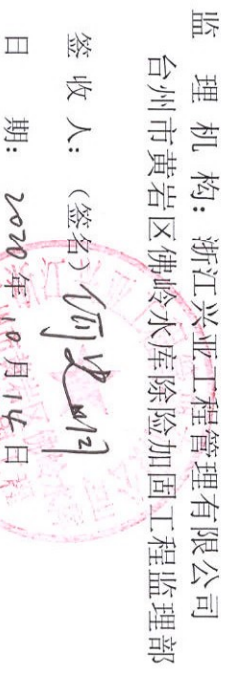 监理机构：浙江兴亚工程管理有限公司
台州市黄岩区佛岭水库除险加固工程监理部
签收人：（签名）
日期：2020年10月14日